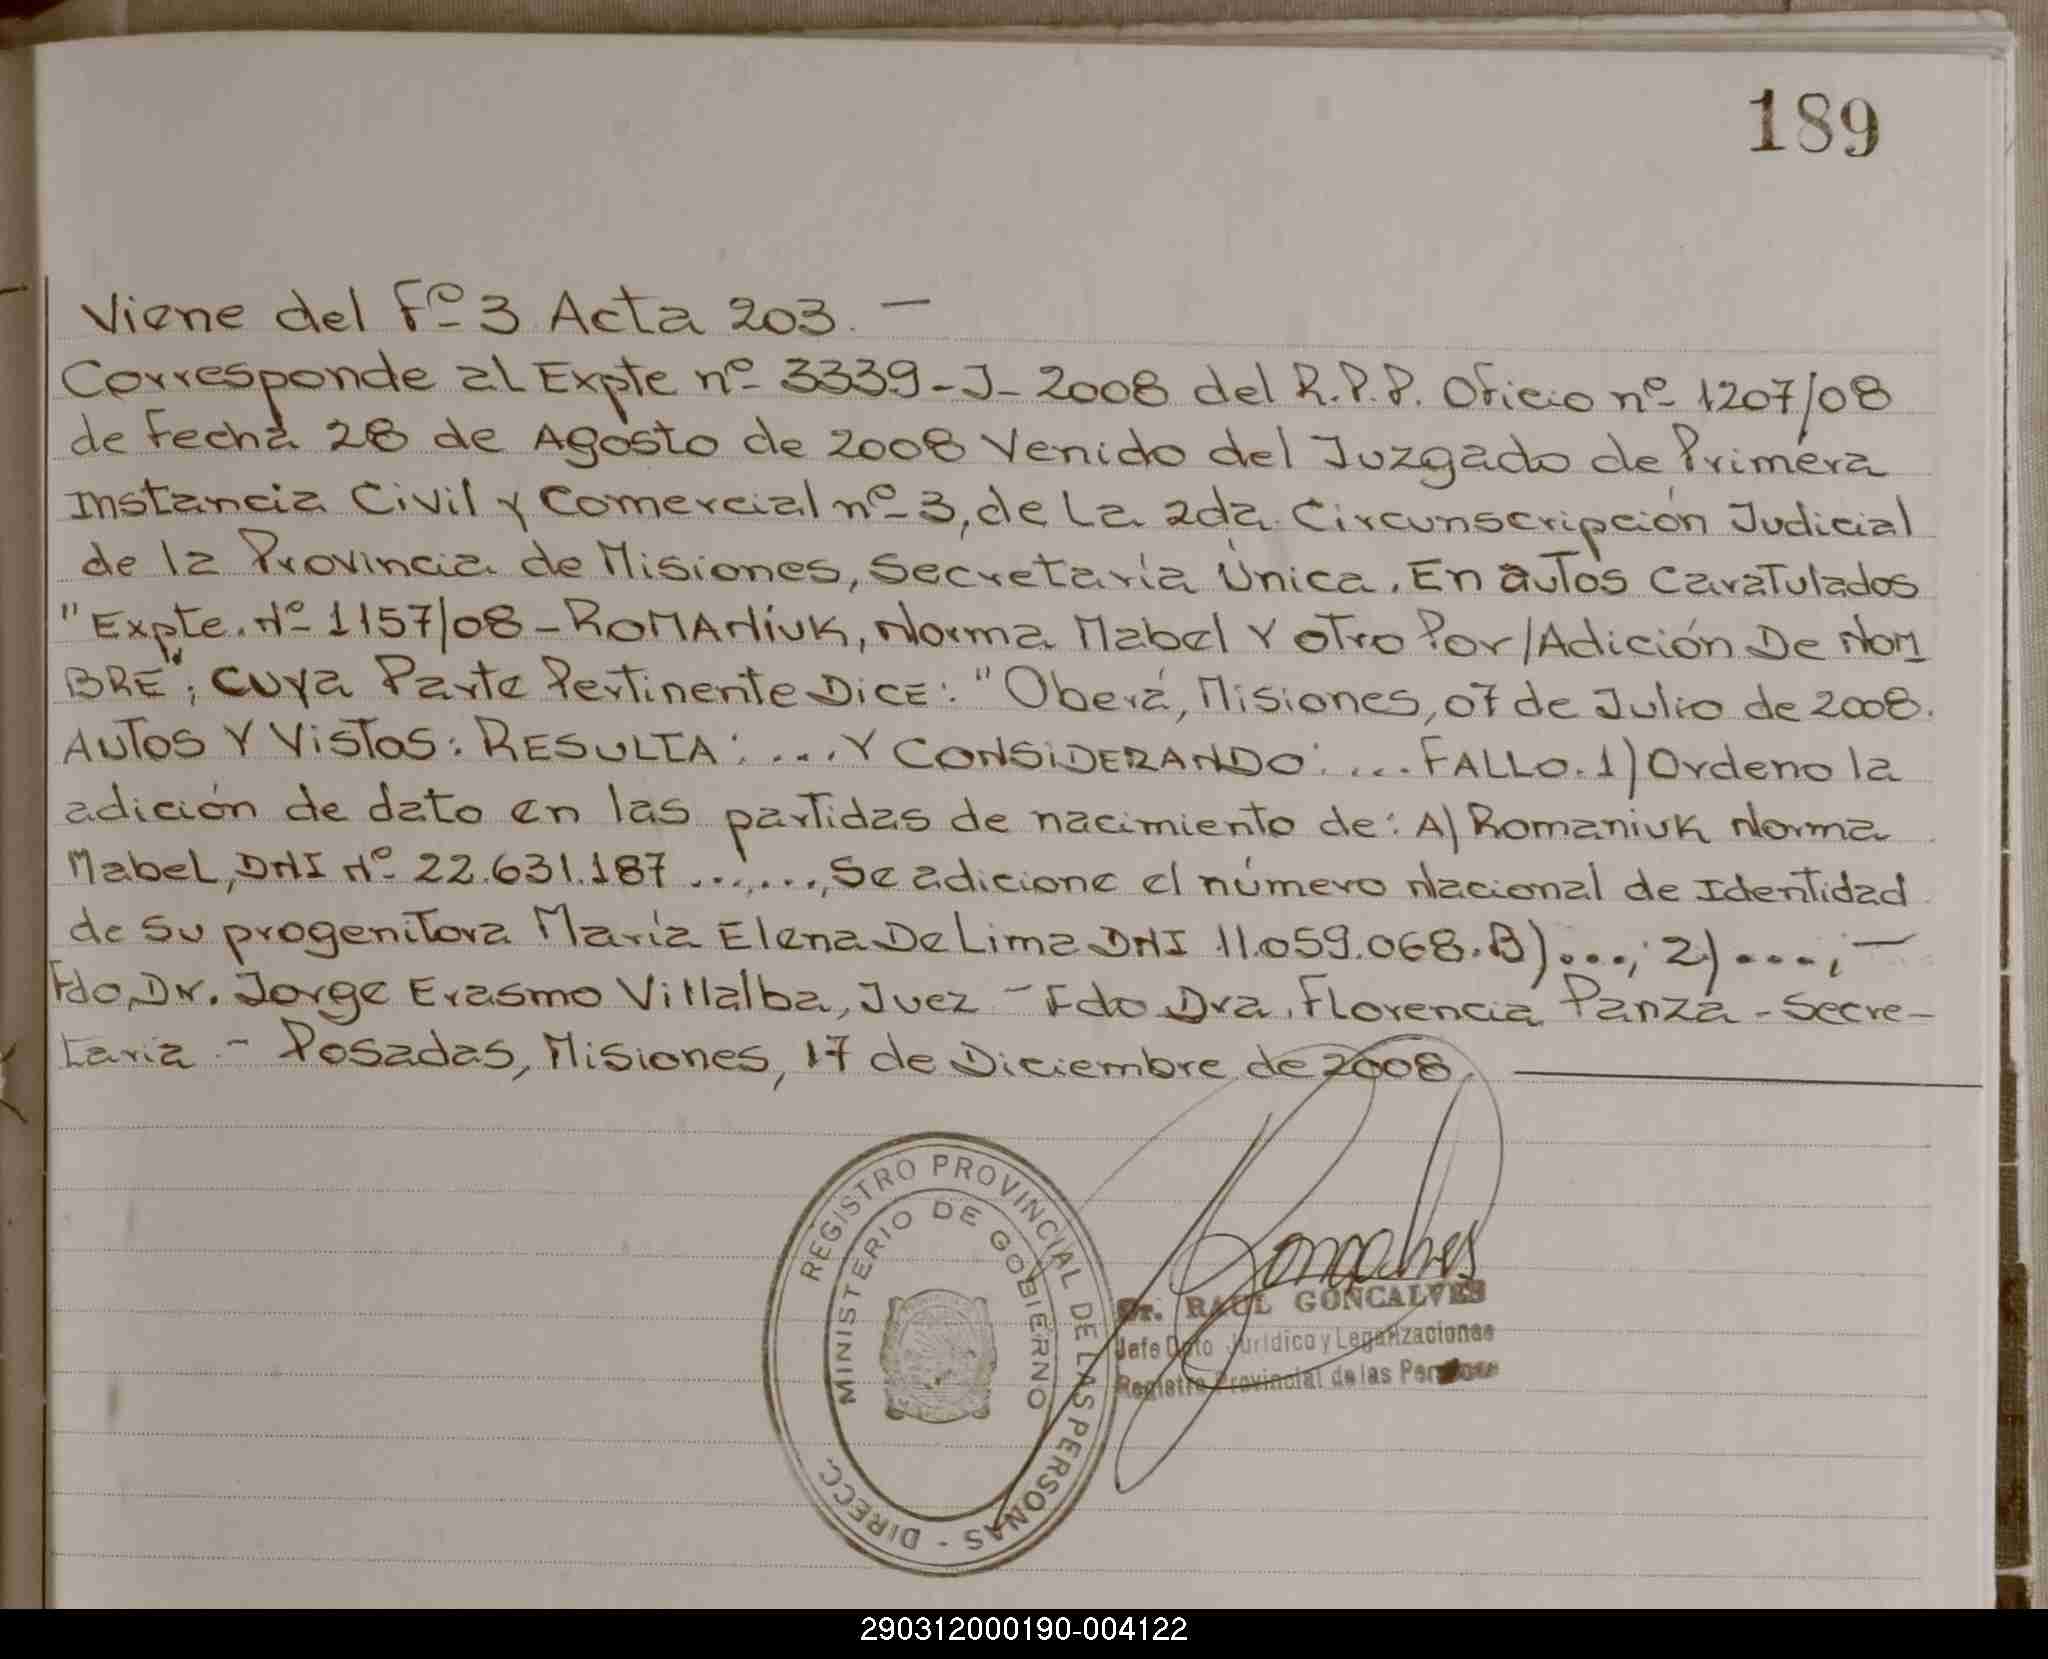 189
Viene del Fº 3 Acta 203. —
Corresponde al Expte nº 3339-J-2008 del R.P.P. Oficio nº 1207/08
de Fecha 28 de Agosto de 2008 Venido del Juzgado de Primera
Instancia Civil y Comercial nº 3, de La 2da. Circunscripción Judicial
de la Provincia de Misiones, Secretaría Única. En autos Caratulados
"Expte. Nº 1157/08 - ROMANiUK, Norma Mabel Y otro Por/Adición De NOM
BRE"; cuya Parte Pertinente DICE: "Oberá, Misiones, 07 de Julio de 2008.
AUTOS Y VISTOS: RESULTA: .... Y CONSiDERANDO: .... FALLO. 1) Ordeno la
adición de dato en las partidas de nacimiento de: A) Romaniuk Norma
Mabel, DNI Nº 22.631.187 ...,..., Se adicione el número Nacional de Identidad
de su progenitora María Elena De Lima DNI 11.059.068. B) ...; 2) ....; —
Fdo, Dr. Jorge Erasmo Villalba, Juez - Fdo Dra. Florencia Panza - Secre-
taria - Posadas, Misiones, 17 de Diciembre de 2008.
REGISTRO PROVINCIAL DE LAS PERSONAS - DIRECC.
MINISTERIO DE GOBIERNO
Goncalves
Dr. RAUL GONCALVES
Jefe Dpto Jurídico y Legalizaciones
Registro Provincial de las Personas
290312000190-004122